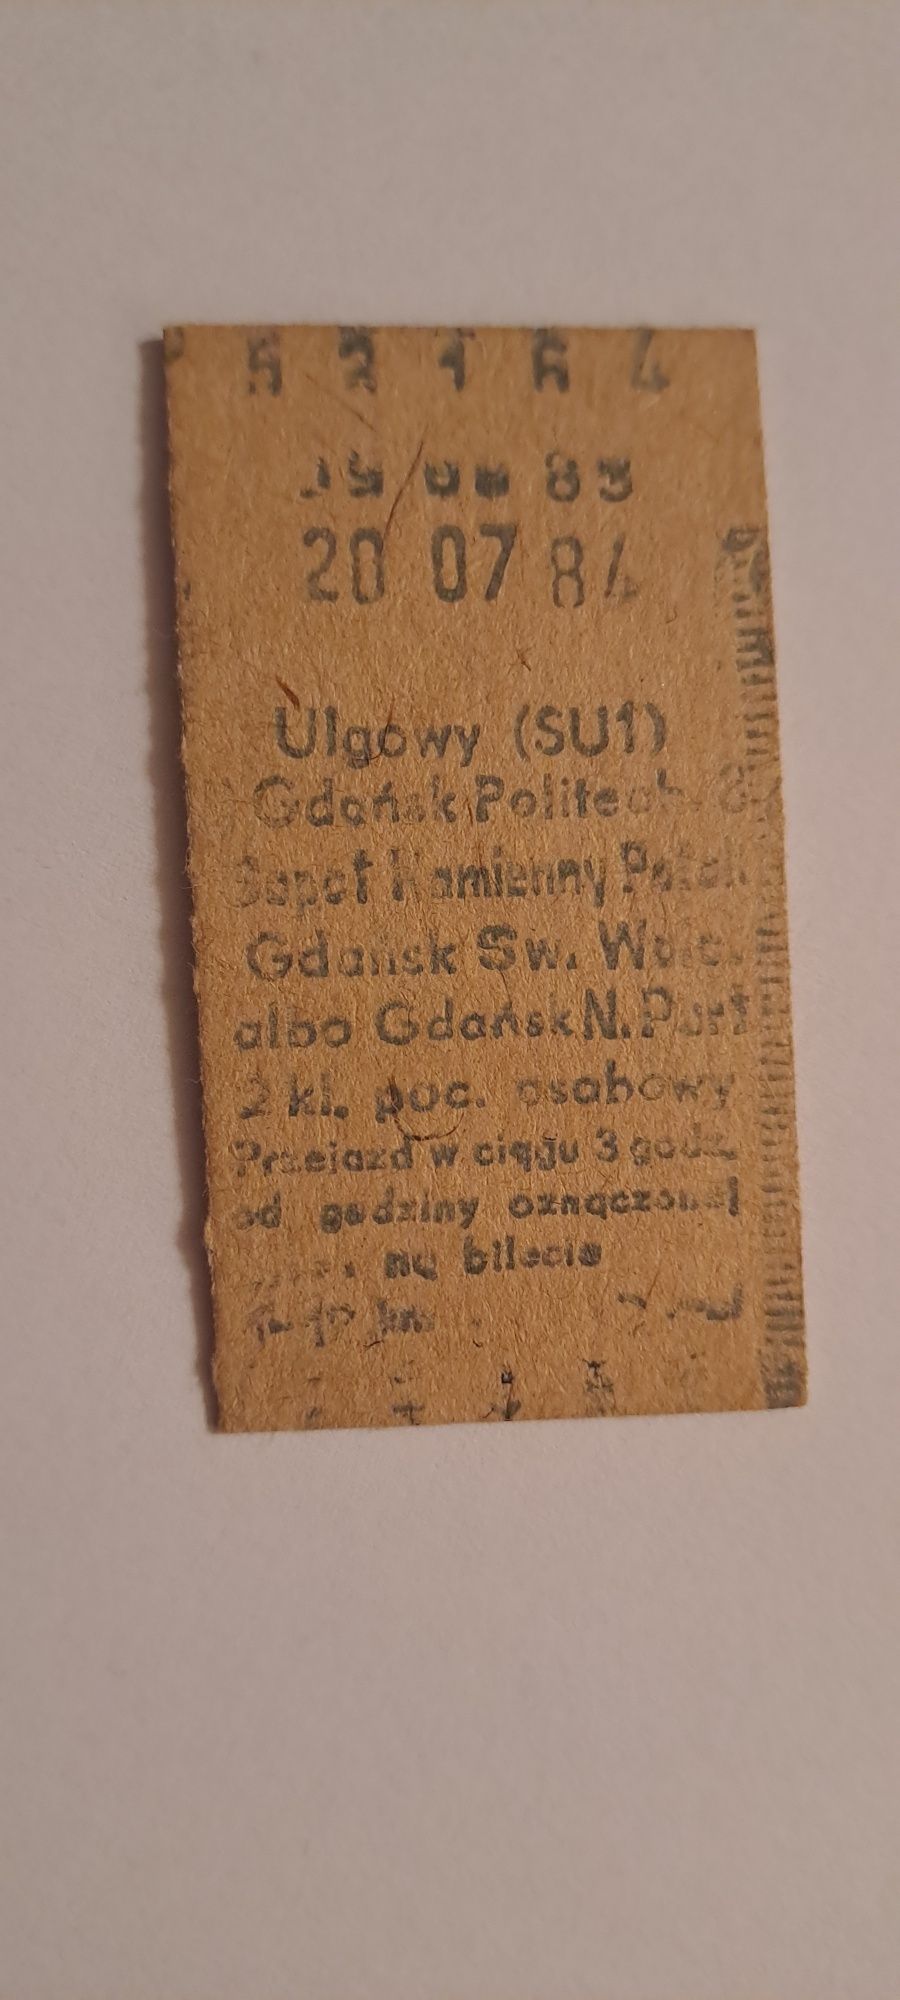 20 07 84
Ulgowy (SU1)
Gdańsk Politech.
Sopot Kamienny Potok
Gdańsk Św.
albo Gdańsk N.Port
2 kl. poc. osobowy
Przejazd w ciągu 3 godz.
od godziny oznaczonej
na bilecie
km